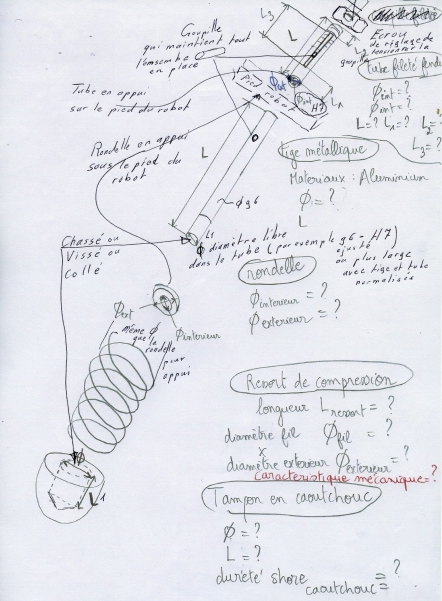 Goupille
qui maintient tout
l'ensemble
en place
L3
L
Ecrou
de réglage de
tension
goupille
L2
Tube fileté fendu
Φint = ?
Φint = ?
L = ? L1 = ? L2 =
L3 = ?
Tube en appui
sur le pied du robot
pied robot
Φext
Φint H7
L1
Rondelle en appui
sous le pied du
robot
L
Φ g6
Tige métallique
Materiaux : Aluminium
Φ = ?
L
Chassé ou
Vissé ou
Collé
L1
Φ diamètre libre
dans le tube (par exemple g6 - H7)
ajusté
ou plus large
avec tige et tube
normalisés
rondelle
Φinterieur = ?
Φexterieur = ?
Φext
Φinterieur
même Φ
que la
rondelle
pour
appui
Ressort de compression
longueur Lressort = ?
diamètre fil Φfil = ?
diamètre exterieur Φexterieur = ?
caracteristique mécanique = ?
Φ
L1
Tampon en caoutchouc
Φ = ?
L = ?
dureté shore caoutchouc = ?